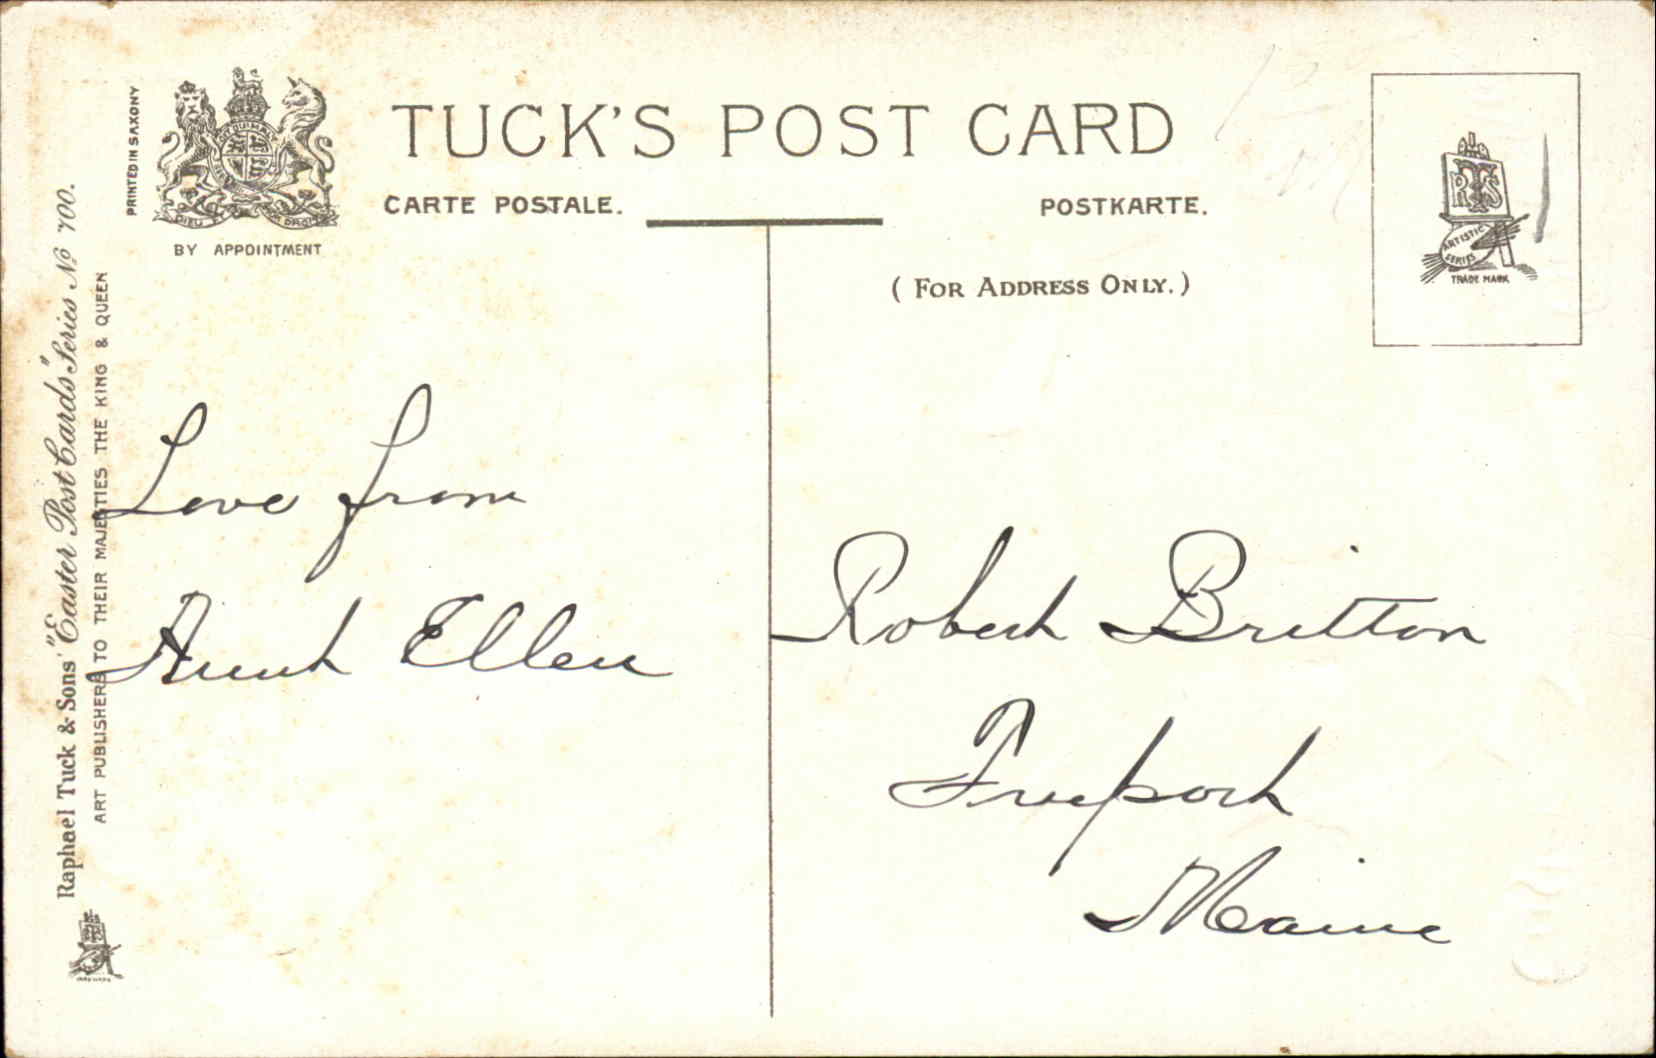 TUCK'S POST CARD
CARTE POSTALE.
POSTKARTE.
(FOR ADDRESS ONLY.)
PRINTED IN SAXONY
BY APPOINTMENT
DIEU ET MON DROIT
RTS
ARTISTIC SERIES
TRADE MARK
Raphael Tuck & Sons' "Easter Post Cards" Series No 700.
ART PUBLISHERS TO THEIR MAJESTIES THE KING & QUEEN
Love from
Aunt Ellen
Robert Britton
Freeport
Maine